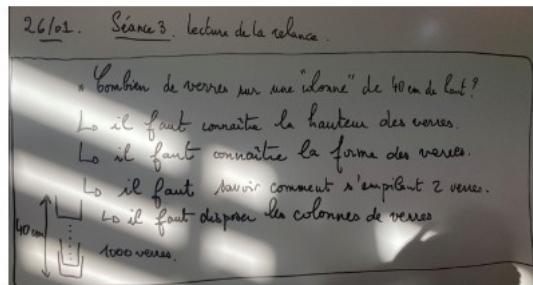 26/01. Séance 3. Lecture de la relance.
* Combien de verres sur une "colonne" de 40 cm de haut?
↳ il faut connaître la hauteur des verres.
↳ il faut connaître la forme des verres.
↳ il faut savoir comment s'empilent 2 verres.
↳ il faut disposer les colonnes de verres
40 cm
1000 verres.